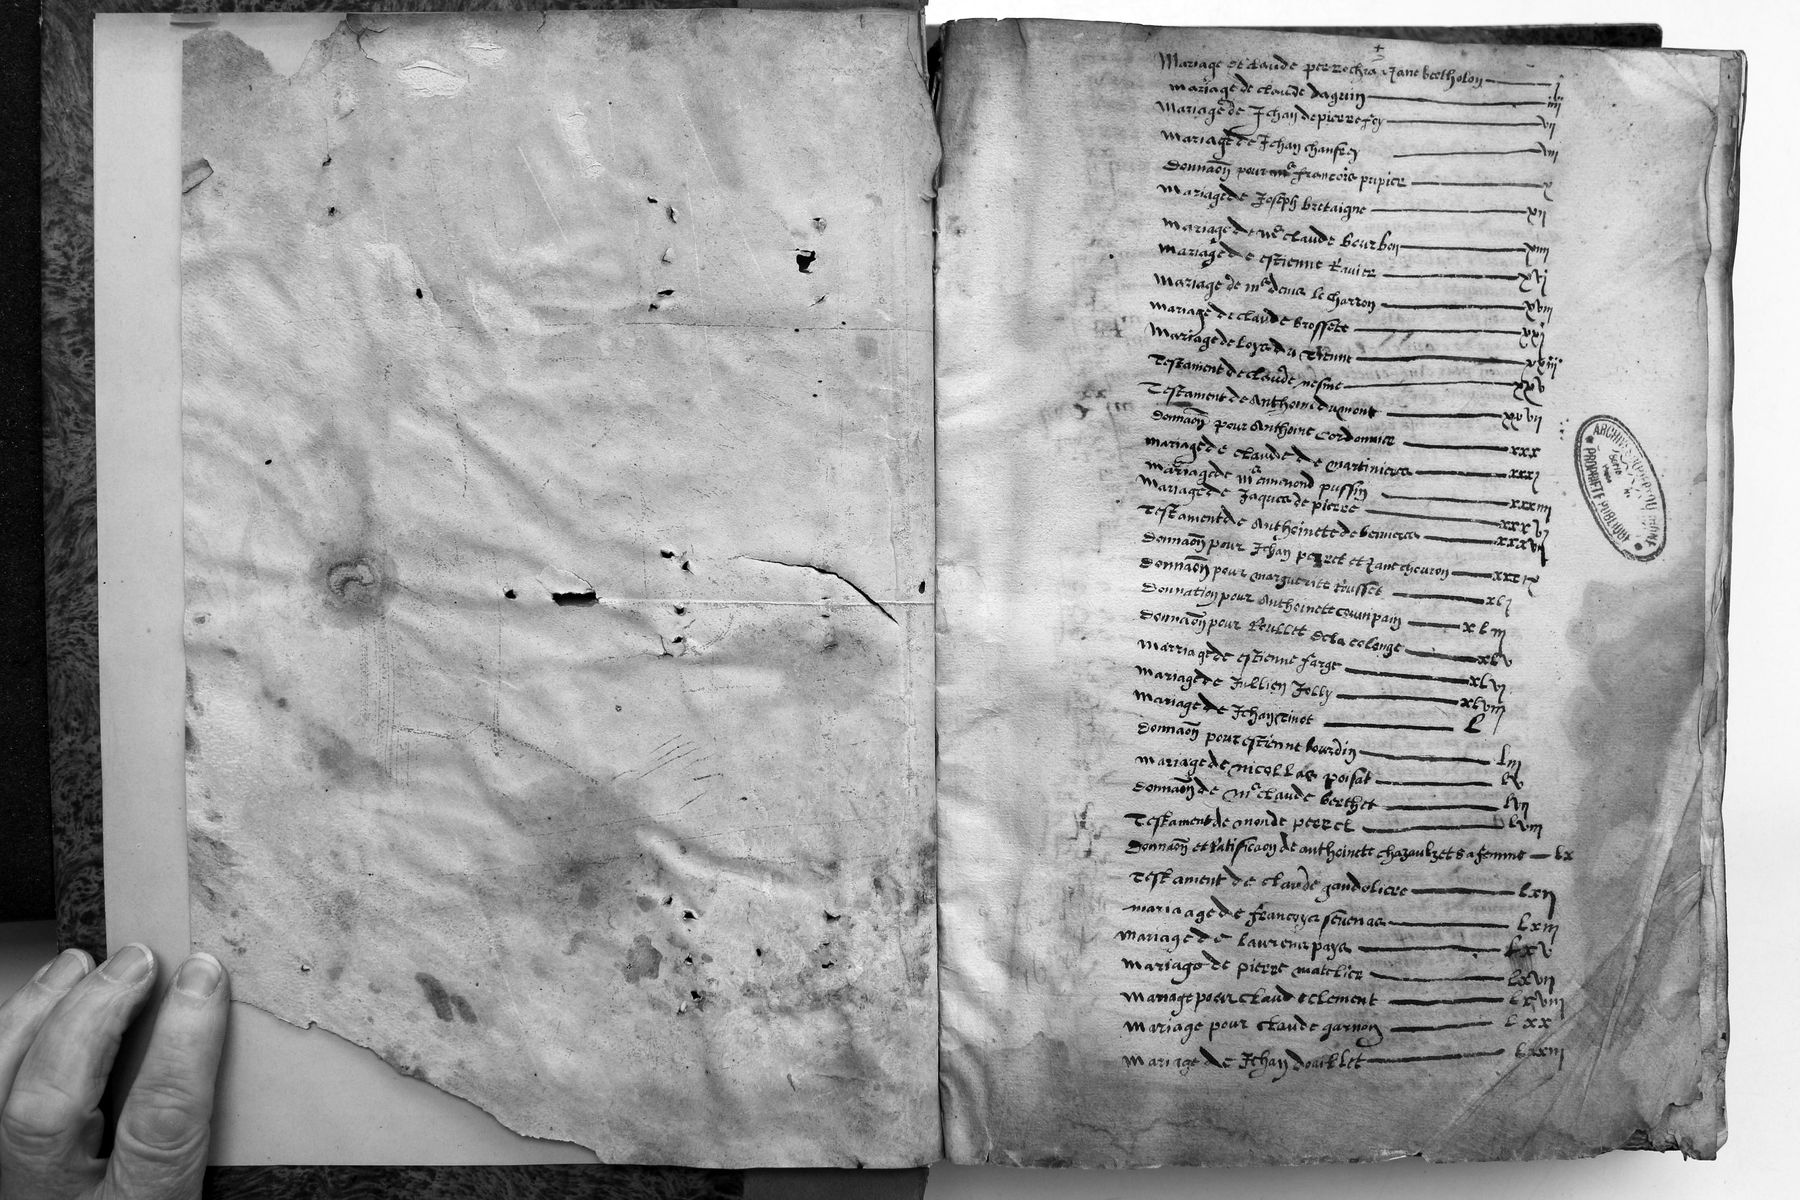 +
Mariage de Claude perrochia Jane bertholon j
Mariage de claude daguin iiij
Mariage de Jehan depierrefey vij
Mariage de Jehan chanfrey viij
Donnaon pour mᵉ francois pupier x
Mariage de Joseph bretaigne xij
Mariage de mᵉ claude bourbon xiiij
Mariage de estienne Ravier xvj
Mariage de mᵉ denis le charron xviij
Mariage de claude brossete xxj
Mariage de loys xxiij
Testament de claude nesme xxv
Testament de Anthoine dumont xxvij
Donnaon pour Anthoine Cordonnier xxx
Mariage de claude de martinieres xxxj
Mariage de mᵉ ennemond pussin xxxiiij
Mariage de Jaques de pierre xxxvj
Testament de Anthoinete de
Donnaon pour Jehan perret et Jane chevron xxxix
Donnaon pour marguerite Rousset xlj
Donnation pour Anthoinete xliij
Donnaon pour Roullet dela colonge xlv
Marriage de estienne farge xlvj
Mariage de Jullien Jolly xlviij
Mariage de Jehan l
Donnaon pour estienne bourdin liij
Mariage de nicollas poisat lv
Donnaon de mᵉ claude berthet lvij
Testament de monde perret lviij
Donnaon et Ratificaon de anthoinete chazault et sa femme lx
Testament de claude gandoliere lxij
mariaage de francoys sevenas lxiij
Mariage de laurens pays lxv
Mariage de pierre matelier lxvij
Mariage pour claude clement lxviij
Mariage pour claude garnon lxx
Mariage de Jehan doaillet lxxiij
ARCHIVES
PROPRIÉTÉ PUBLIQUE